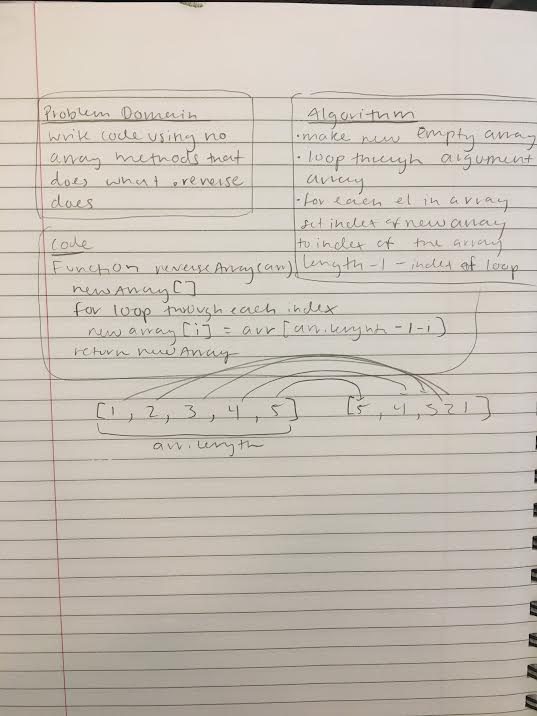 Problem Domain
write code using no
array methods that
does what .reverse
does
Algorithm
• make new Empty array
• loop through argument
array
• for each el in array
set index of new array
to index of the array
length -1 - index of loop
Code
Function reverseArray(arr)
newArray[]
for loop through each index
new array [i] = arr [arr.lenght -1-i]
return newArray
[1, 2, 3, 4, 5] [5, 4, 3 2 1]
arr.length